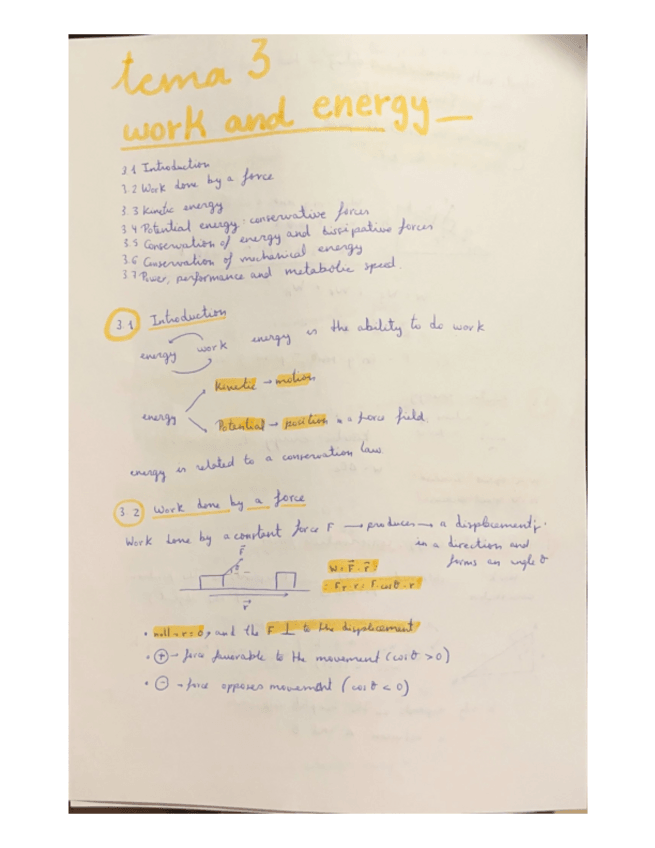 tema 3
work and energy
3.1 Introduction
3.2 Work done by a force
3.3 Kinetic energy
3.4 Potential energy: conservative forces
3.5 Conservation of energy and dissipative forces
3.6 Conservation of mechanical energy
3.7 Power, performance and metabolic speed.
3.1 Introduction
energy work energy is the ability to do work
Kinetic → motion
energy
Potential → position in a force field.
energy is related to a conservation law
3.2 Work done by a force
Work done by a constant force F → produces → a displacement r
in a direction and
forms an angle θ
F
W = F · r =
= Fr · r = F · cos θ · r
r
• null → r = 0, and the F ⊥ to the displacement
• + → force favorable to the movement (cos θ > 0)
• - → force opposes movement (cos θ < 0)